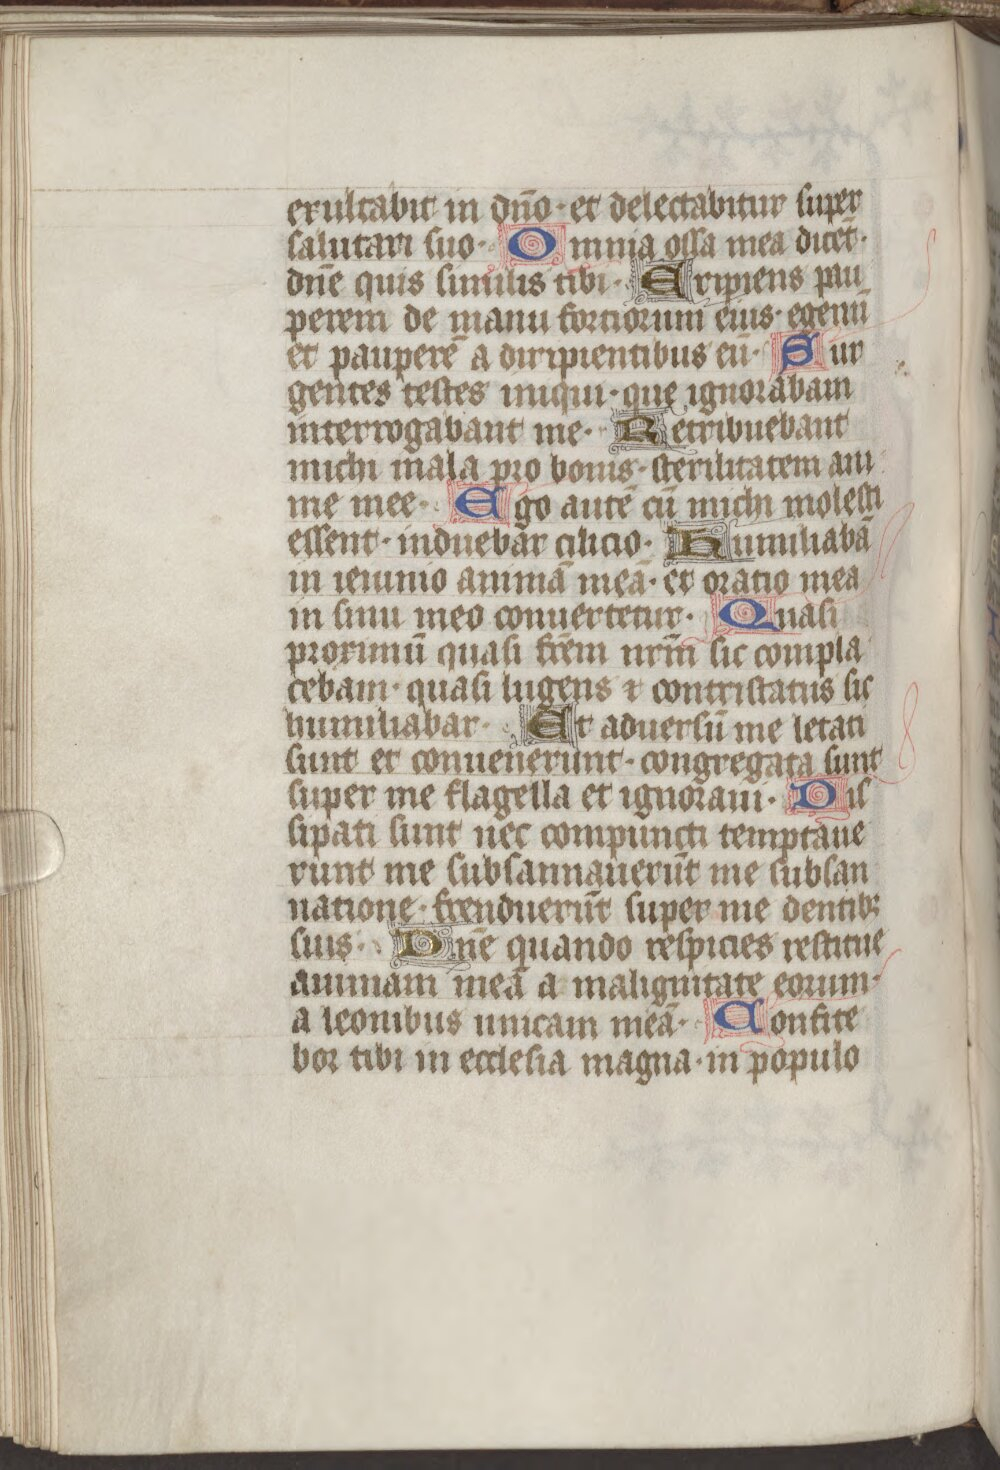 exultabit in dn̄o · et delectabitur super
salutari suo · Omnia ossa mea dicēt ·
dn̄e quis similis tibi · Eripiens pau
perem de manu fortiorum eius · egenū
et pauperē a diripientibus eū · Sur
gentes testes iniqui · que ignorabam
interrogabant me · Retribuebant
michi mala pro bonis · sterilitatem ani
me mee · Ego autē cū michi molesti
essent · induebar cilicio · Humiliabā
in ieiunio animā meā · et oratio mea
in sinu meo convertetur · Quasi
proximū quasi frēm nrm̄ sic compla
cebam · quasi lugens ⁊ contristatus sic
humiliabar · Et adversū me letati
sunt et convenerunt · congregata sunt
super me flagella et ignoravi · Dis
sipati sunt nec compuncti temptave
runt me subsannaverūt me subsan
natione · frenduerūt super me dentibꝫ
suis · Dn̄e quando respicies restitue
animam meā a malignitate eorum ·
a leonibus unicam meā · Confite
bor tibi in ecclesia magna · in populo